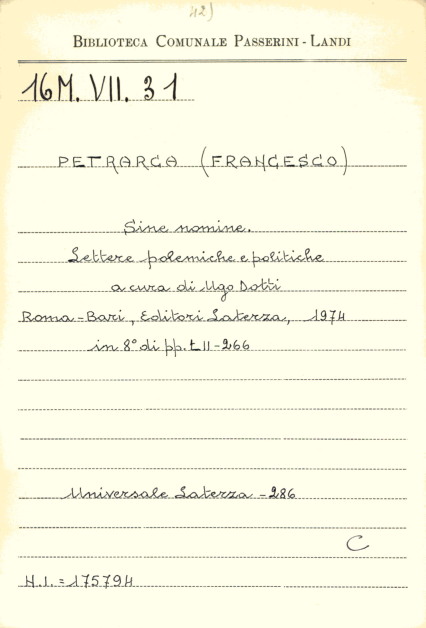 42)
BIBLIOTECA COMUNALE PASSERINI-LANDI
16M. VII. 31
PETRARCA (FRANCESCO)
Sine nomine.
Lettere polemiche e politiche
a cura di Ugo Dotti
Roma-Bari, Editori Laterza, 1974
in 8° di pp. LII-266
Universale Laterza - 286
C
N.I. = 175794